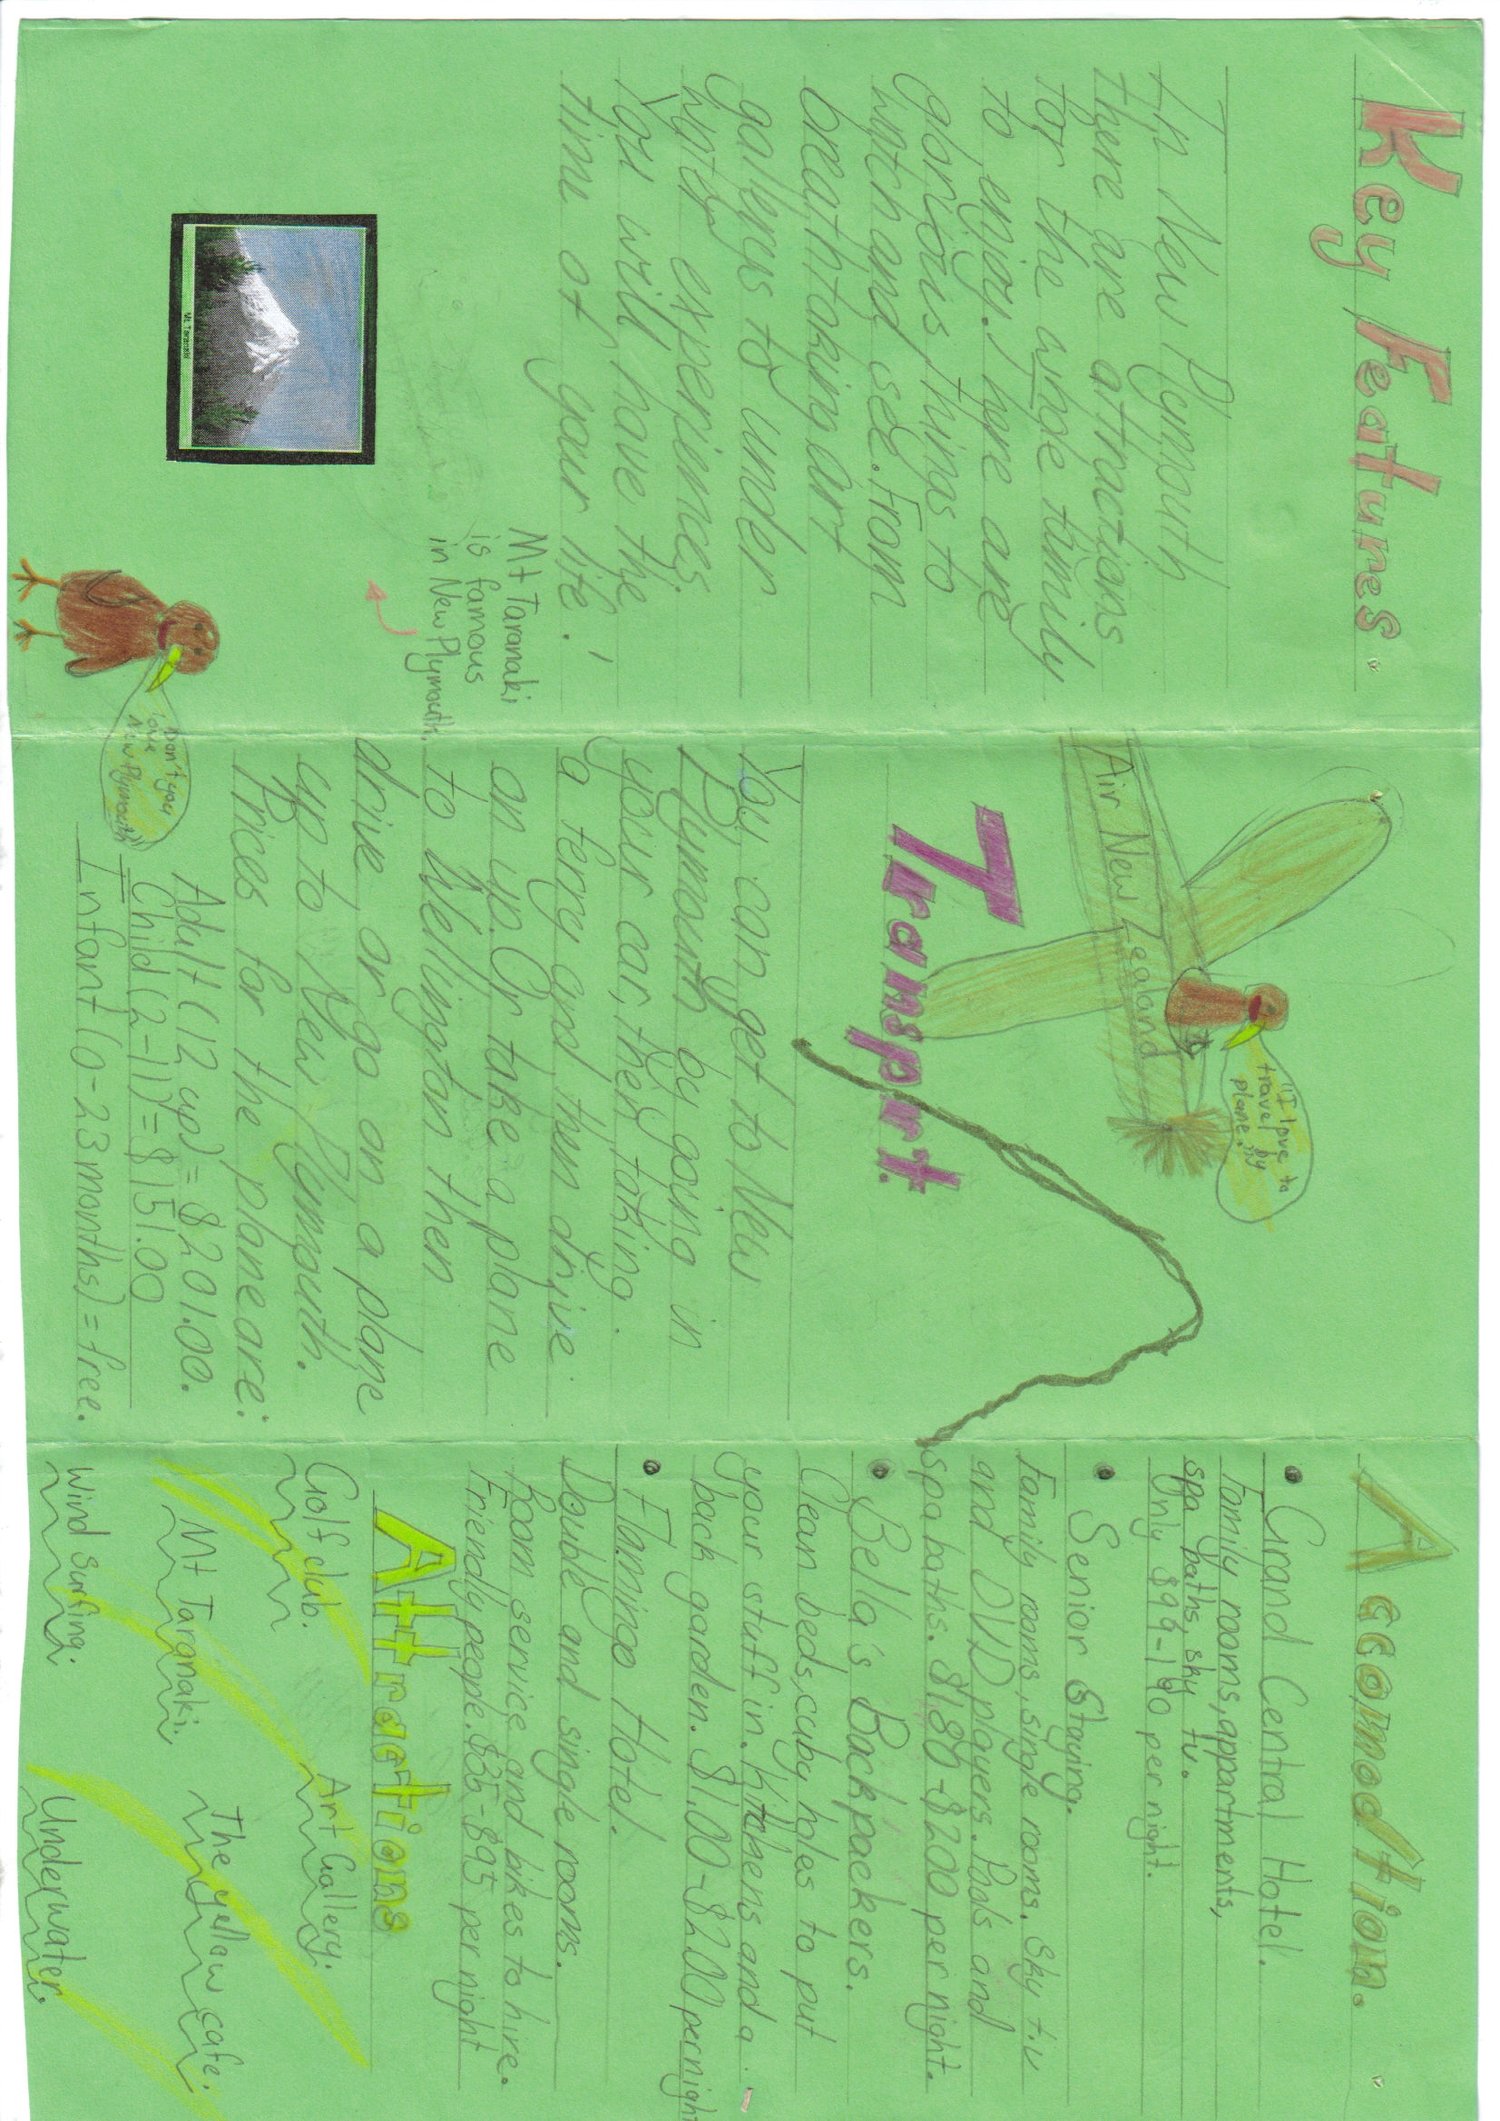 Key Features.
In New Plymouth
there are attractions
for the whole family
to enjoy. There are
glorious things to
watch and see. From
breathtaking art
gallyrys to under
water experiences.
You will have the
time of your life!
Mt Taranaki
is famous
in New Plymouth
Mt Taranaki
Don't you
love
New Plymouth
Air New Zealand
"I love to
travel by
plane."
Transport.
You can get to New
Plymouth by going in
your car, then taking
a ferry and then drive
on up. Or take a plane
to Wellington then
drive, or go on a plane
up to New Plymouth.
Prices for the plane are:
Adult (12 up) = $201.00.
Child (2-11) = $151.00
Infant (0-23 months) = free.
Accomodtion.
• Grand Central Hotel.
Family rooms, appartments,
spa baths, sky tv.
Only $99-190 per night.
• Senior Staying.
Family rooms, single rooms. Sky t.v
and DVD players. Pools and
spa baths. $180-$200 per night.
• Bella's Backpackers.
Clean beds, cuby holes to put
your stuff in. Kitchens and a
back garden. $1.00-$200 per night
• Flamingo Hotel.
Double and single rooms.
Room service and bikes to hire.
Friendly people. $85-$95 per night
Attractions
Golf club.
Art Gallery.
Mt Taranaki.
The yellaw cafe.
Wind surfing.
Underwater.